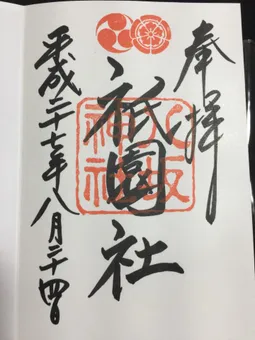 奉拝
八坂神社
祇園社
平成二十七年八月二十四日